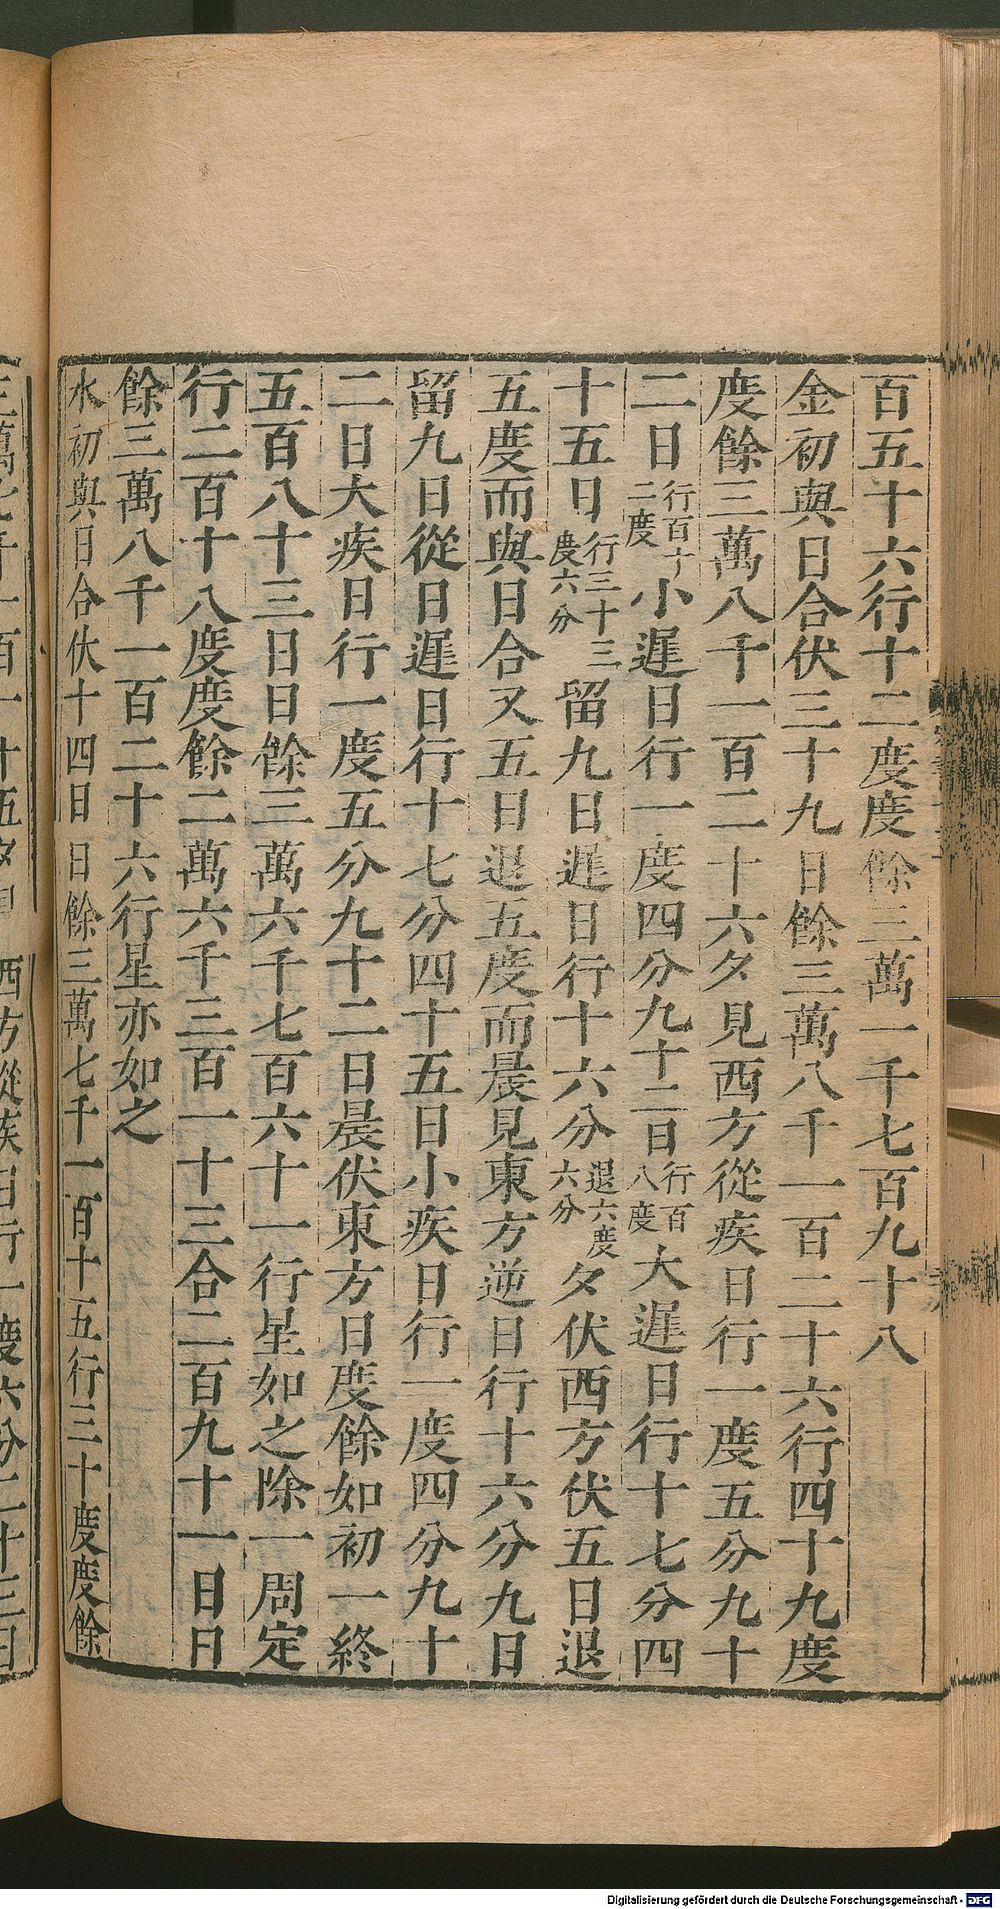 百五十六行十二度度餘三萬一千七百九十八
金初與日合伏三十九日餘三萬八千一百二十六行四十九度
度餘三萬八千一百二十六夕見西方從疾日行一度五分九十
二日行百十二度小遲日行一度四分九十二日行百八度大遲日行十七分四
十五日行三十三度六分留九日遲日行十六分退六度六分夕伏西方伏五日退
五度而與日合又五日退五度而晨見東方逆日行十六分九日
留九日從日遲日行十七分四十五日小疾日行一度四分九十
二日大疾日行一度五分九十二日晨伏東方日度餘如初一終
五百八十三日日餘三萬六千七百六十一行星如之除一周定
行二百十八度度餘二萬六千三百一十三合二百九十一日日
餘三萬八千一百二十六行星亦如之
水初與日合伏十四日日餘三萬七千一百十五行三十度度餘
西方從疾日行一度六分二十三日
Digitalisierung gefördert durch die Deutsche Forschungsgemeinschaft - DFG